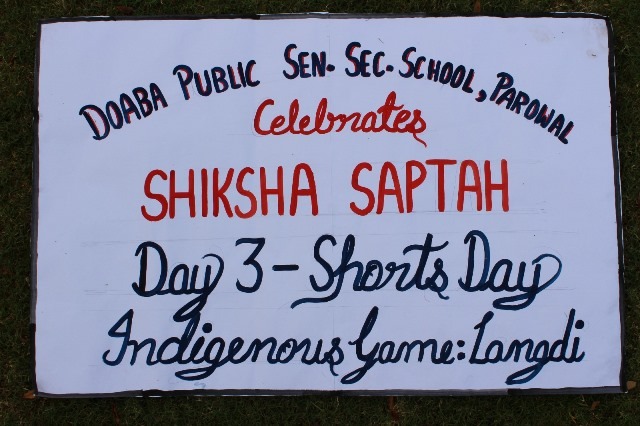 DOABA PUBLIC SEN. SEC. SCHOOL, PAROWAL
Celebrates
SHIKSHA SAPTAH
Day 3 - Sports Day
Indigenous Game: Langdi